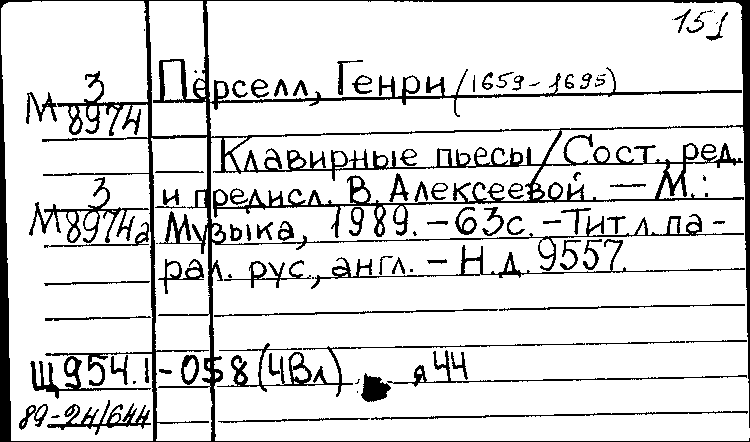 151
М 3/8974 Пёрселл, Генри (1659-1695)
Клавирные пьесы / Сост., ред.
М 3/8974а и предисл. В. Алексеевой. — М.:
Музыка, 1989. – 63с. – Тит. л. па-
рал. рус., англ. – Н.д. 9557.
Щ954.1-058(4Вл) я44
89-24/644